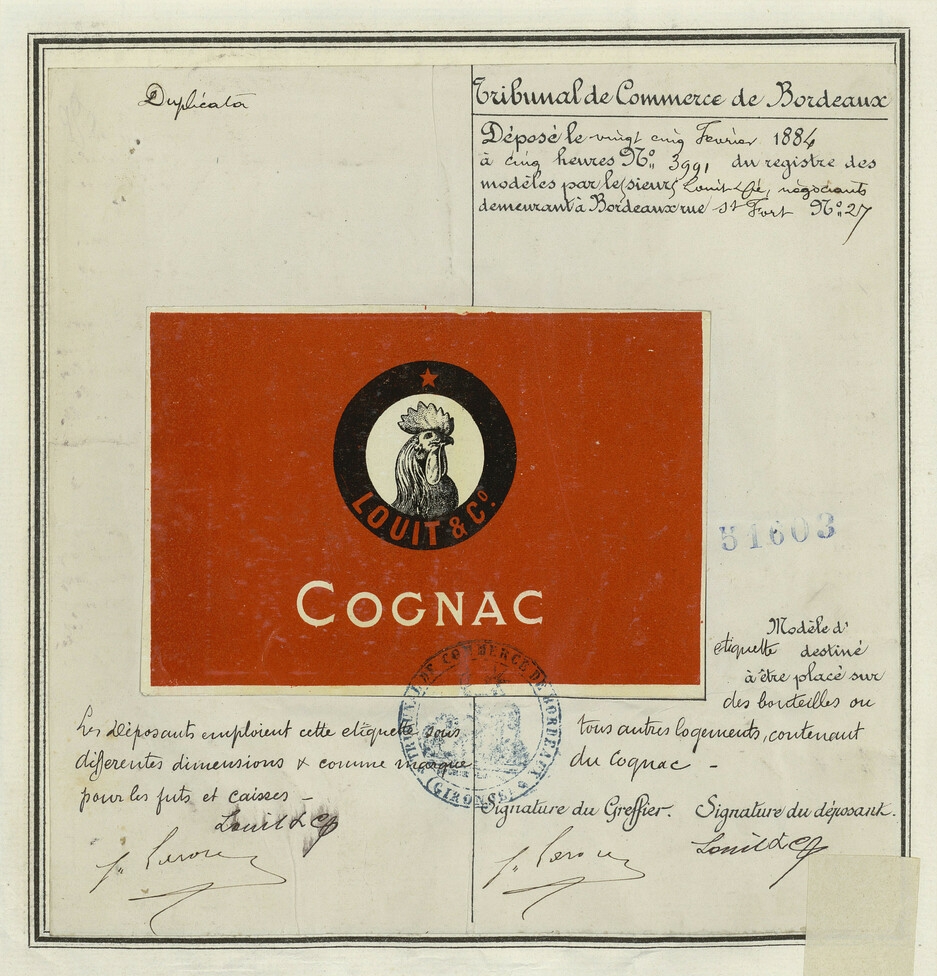 Duplicata
Tribunal de Commerce de Bordeaux
Déposé le vingt cinq Fevrier 1884
à cinq heures No. 3991 du registre des
modèles par le(sieurs) Louit & Cie, négociants
demeurant à Bordeaux rue St Fort No. 27
LOUIT & Co.
COGNAC
51603
Modèle d'
etiquette destiné
à être placé sur
des bouteilles ou
tous autres logements, contenant
du Cognac -
Les déposants emploient cette etiquette sous
differentes dimensions & comme marque
pour les futs et caisses -
Louit & Co
TRIBUNAL DE COMMERCE DE BORDEAUX
(GIRONDE)
Signature du Greffier. Signature du déposant.
Louit & Co